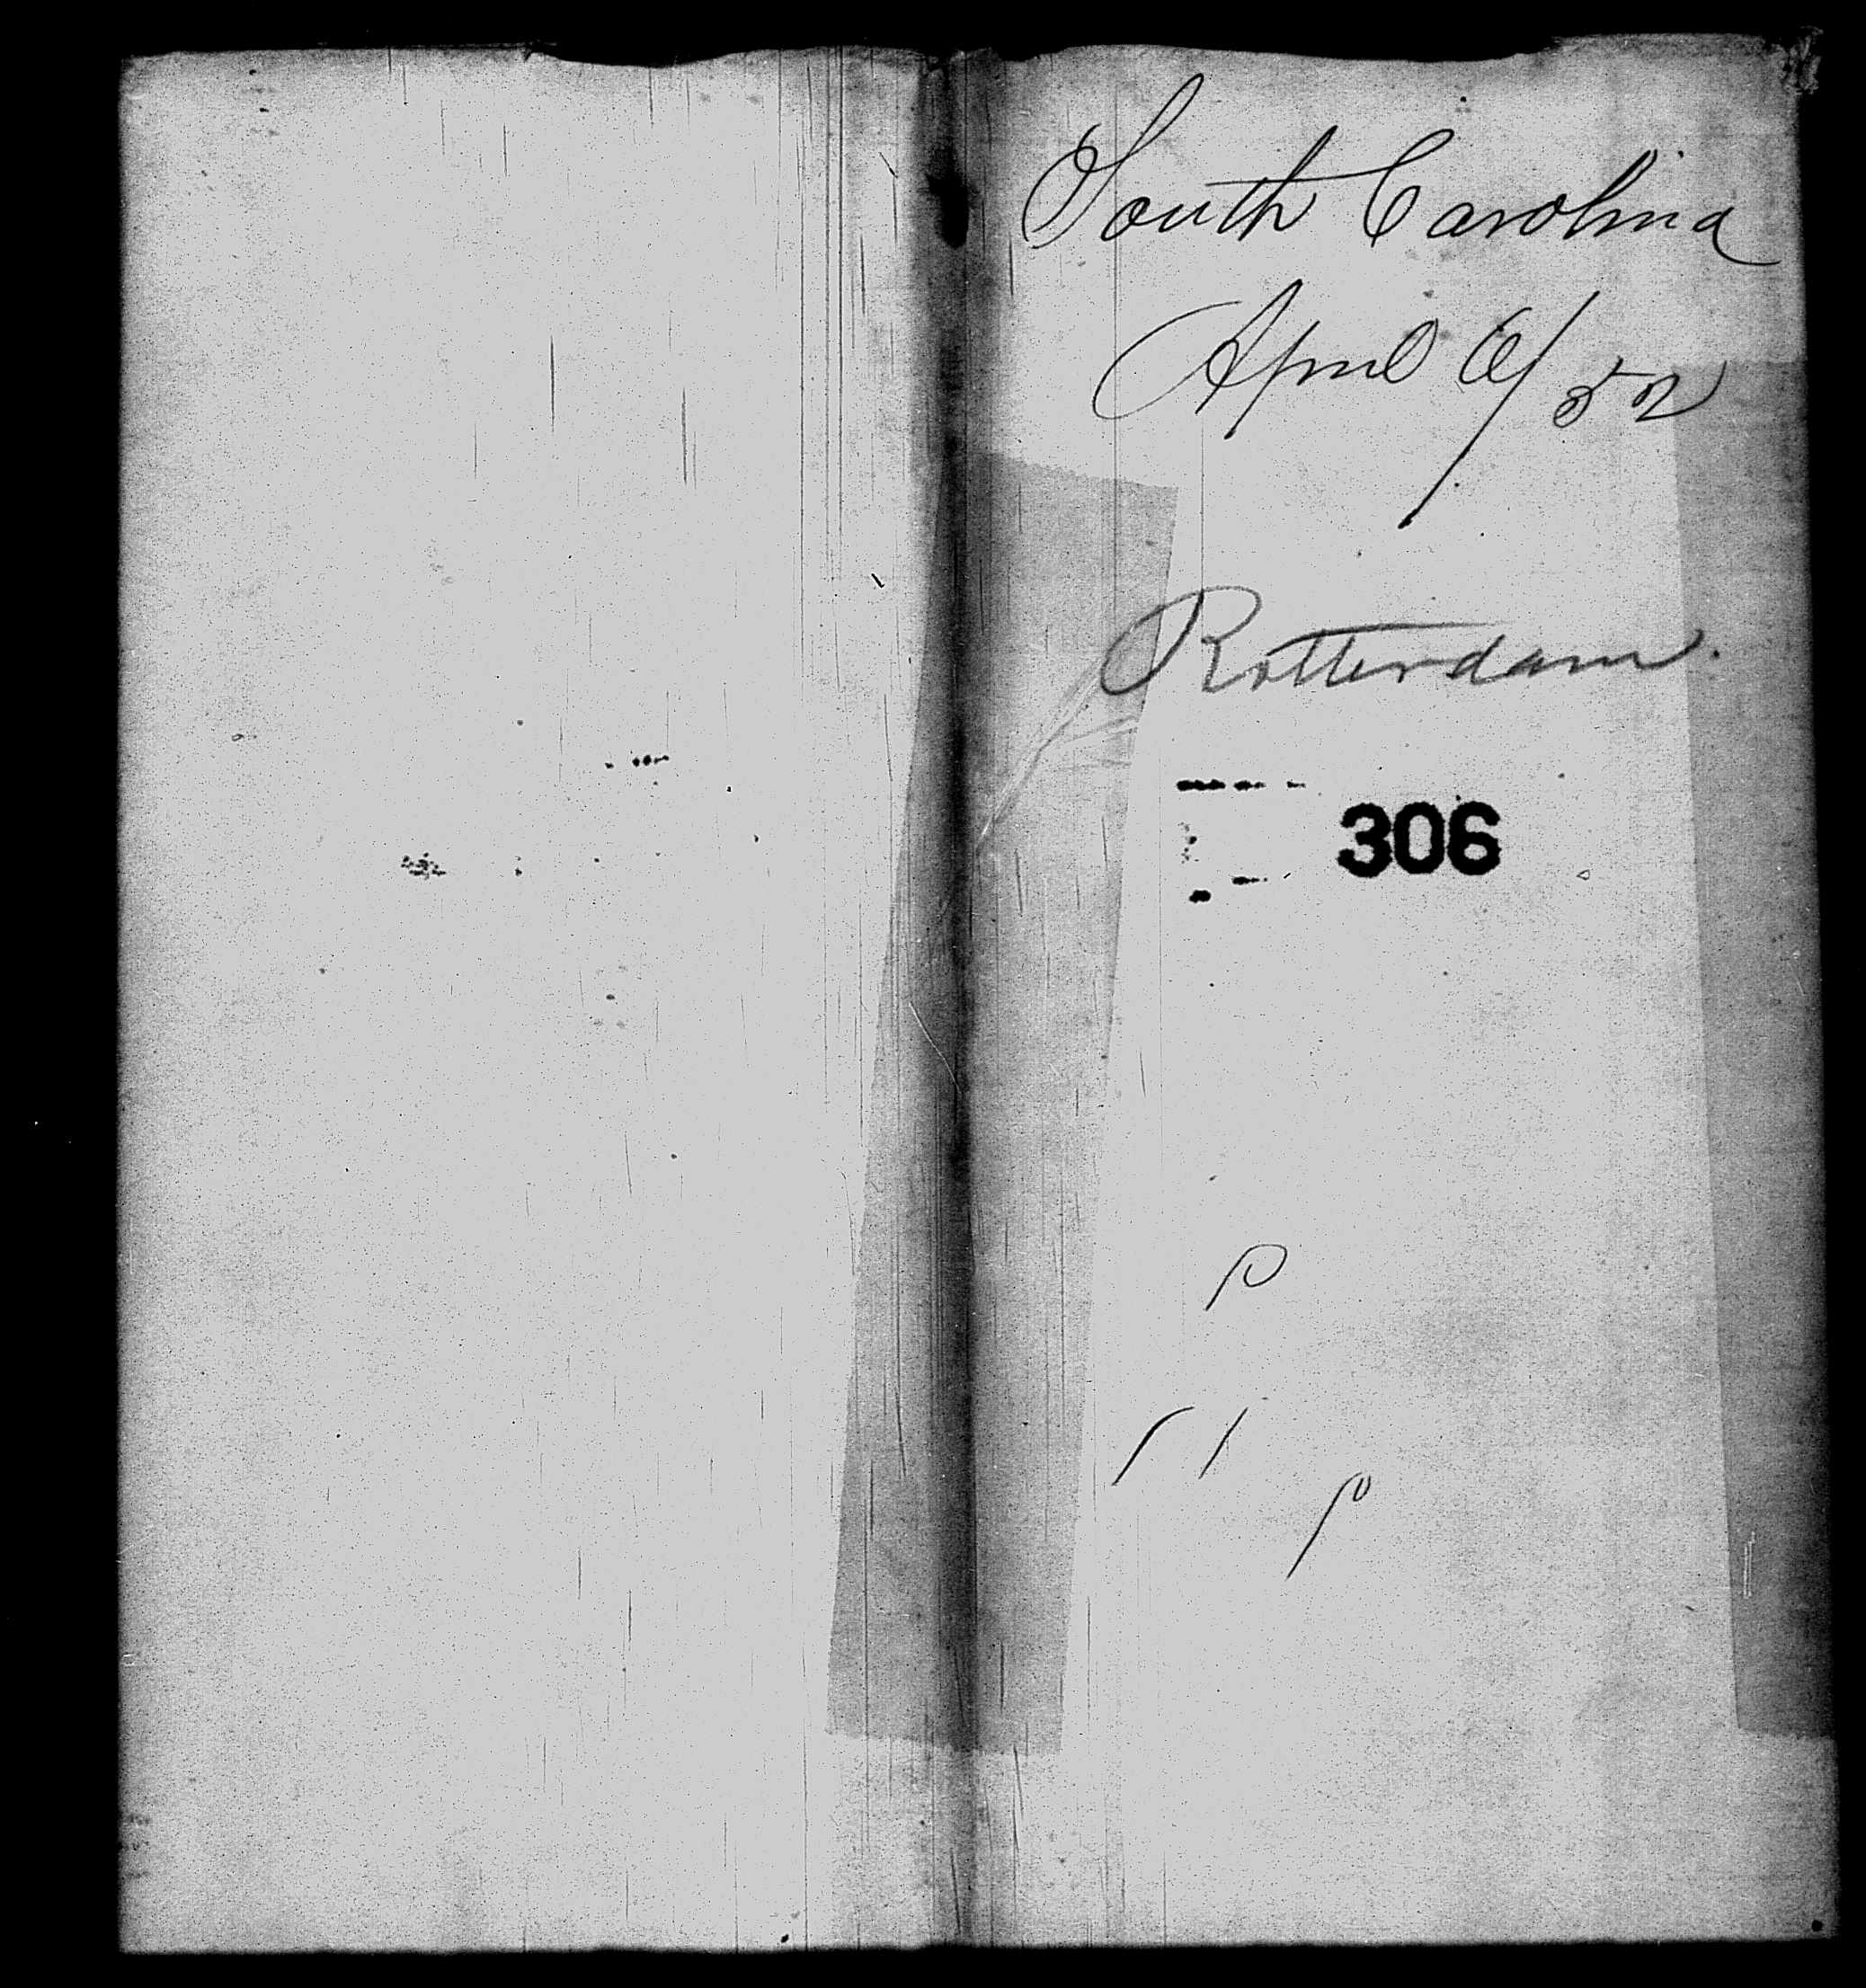 South Carolina
April 6/52
Rotterdam.
306